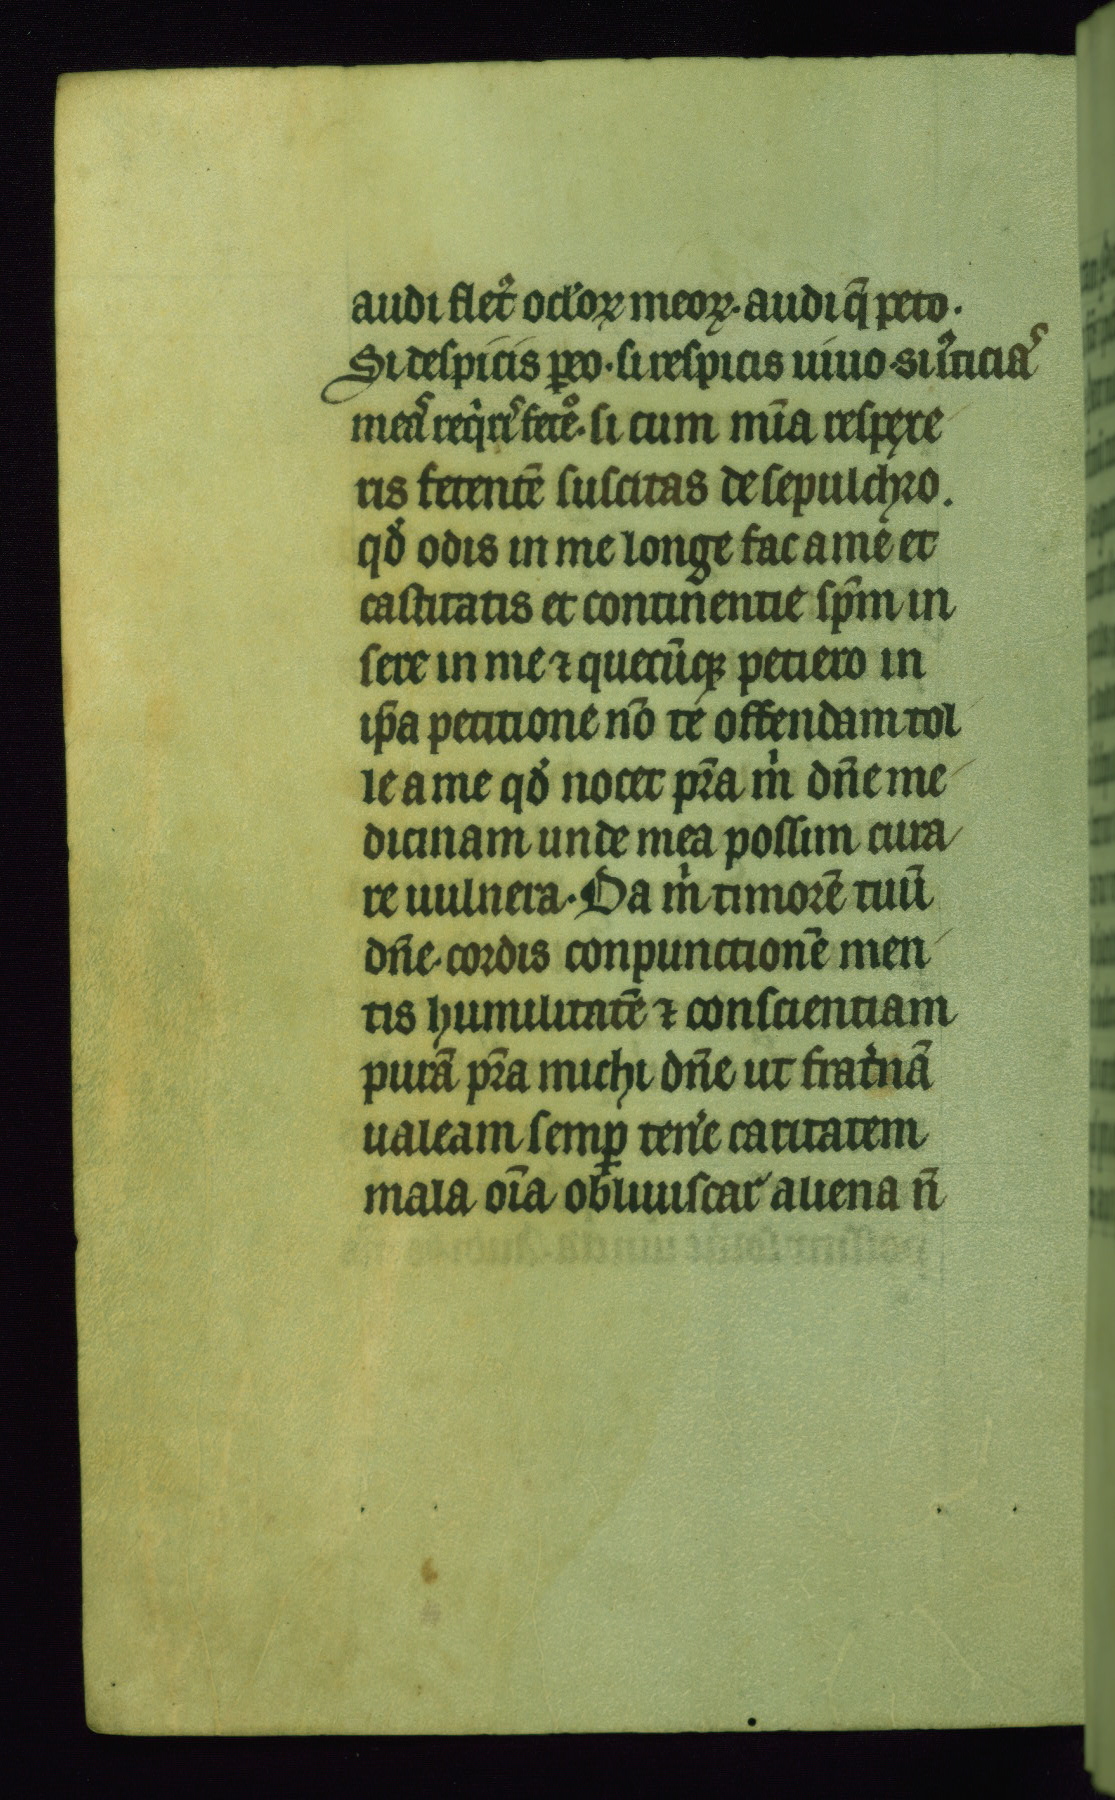 audi flet᷑ ocl'oꝝ meoꝝ. audi q̃ peto.
Si despicis ꝑeo. si respicis uiuo. si iusticiã
meã req̉ris feteo. si cum mĩa respexe
ris fetentẽ suscitas de sepulchro.
qđ odis in me longe fac a me et
castitatis et continentie sp̃m in
sere in me ⁊ quecũqꝫ petiero in
ip̃a petitione nõ te offendam tol
le a me qđ nocet p̃ra m̉ dñe me
dicinam unde mea possim cura
re uulnera. Da m̉ timorẽ tuũ
dñe. cordis conpunctionẽ men
tis humilitatẽ ⁊ conscientiam
purã p̃ra michi dñe ut frat̉nã
ualeam semꝑ ten'e caritatem
mala oĩa obliuiscar aliena ñ